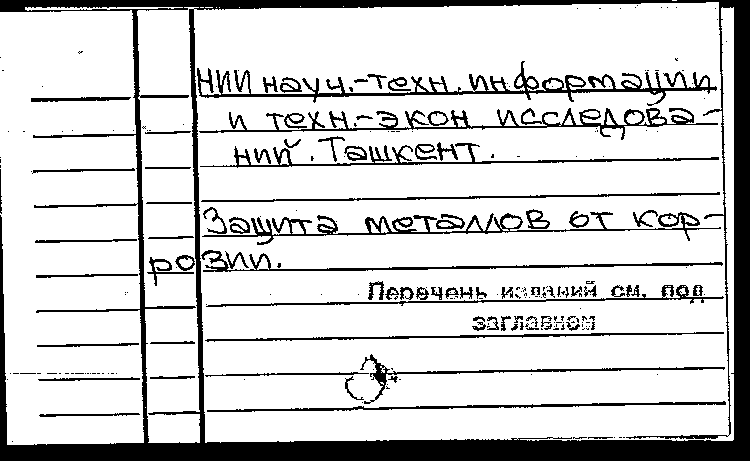 НИИ науч.-техн. информации
и техн.-экон. исследова-
ний. Ташкент.
Защита металлов от кор-
розии.
Перечень изданий см. под
заглавном